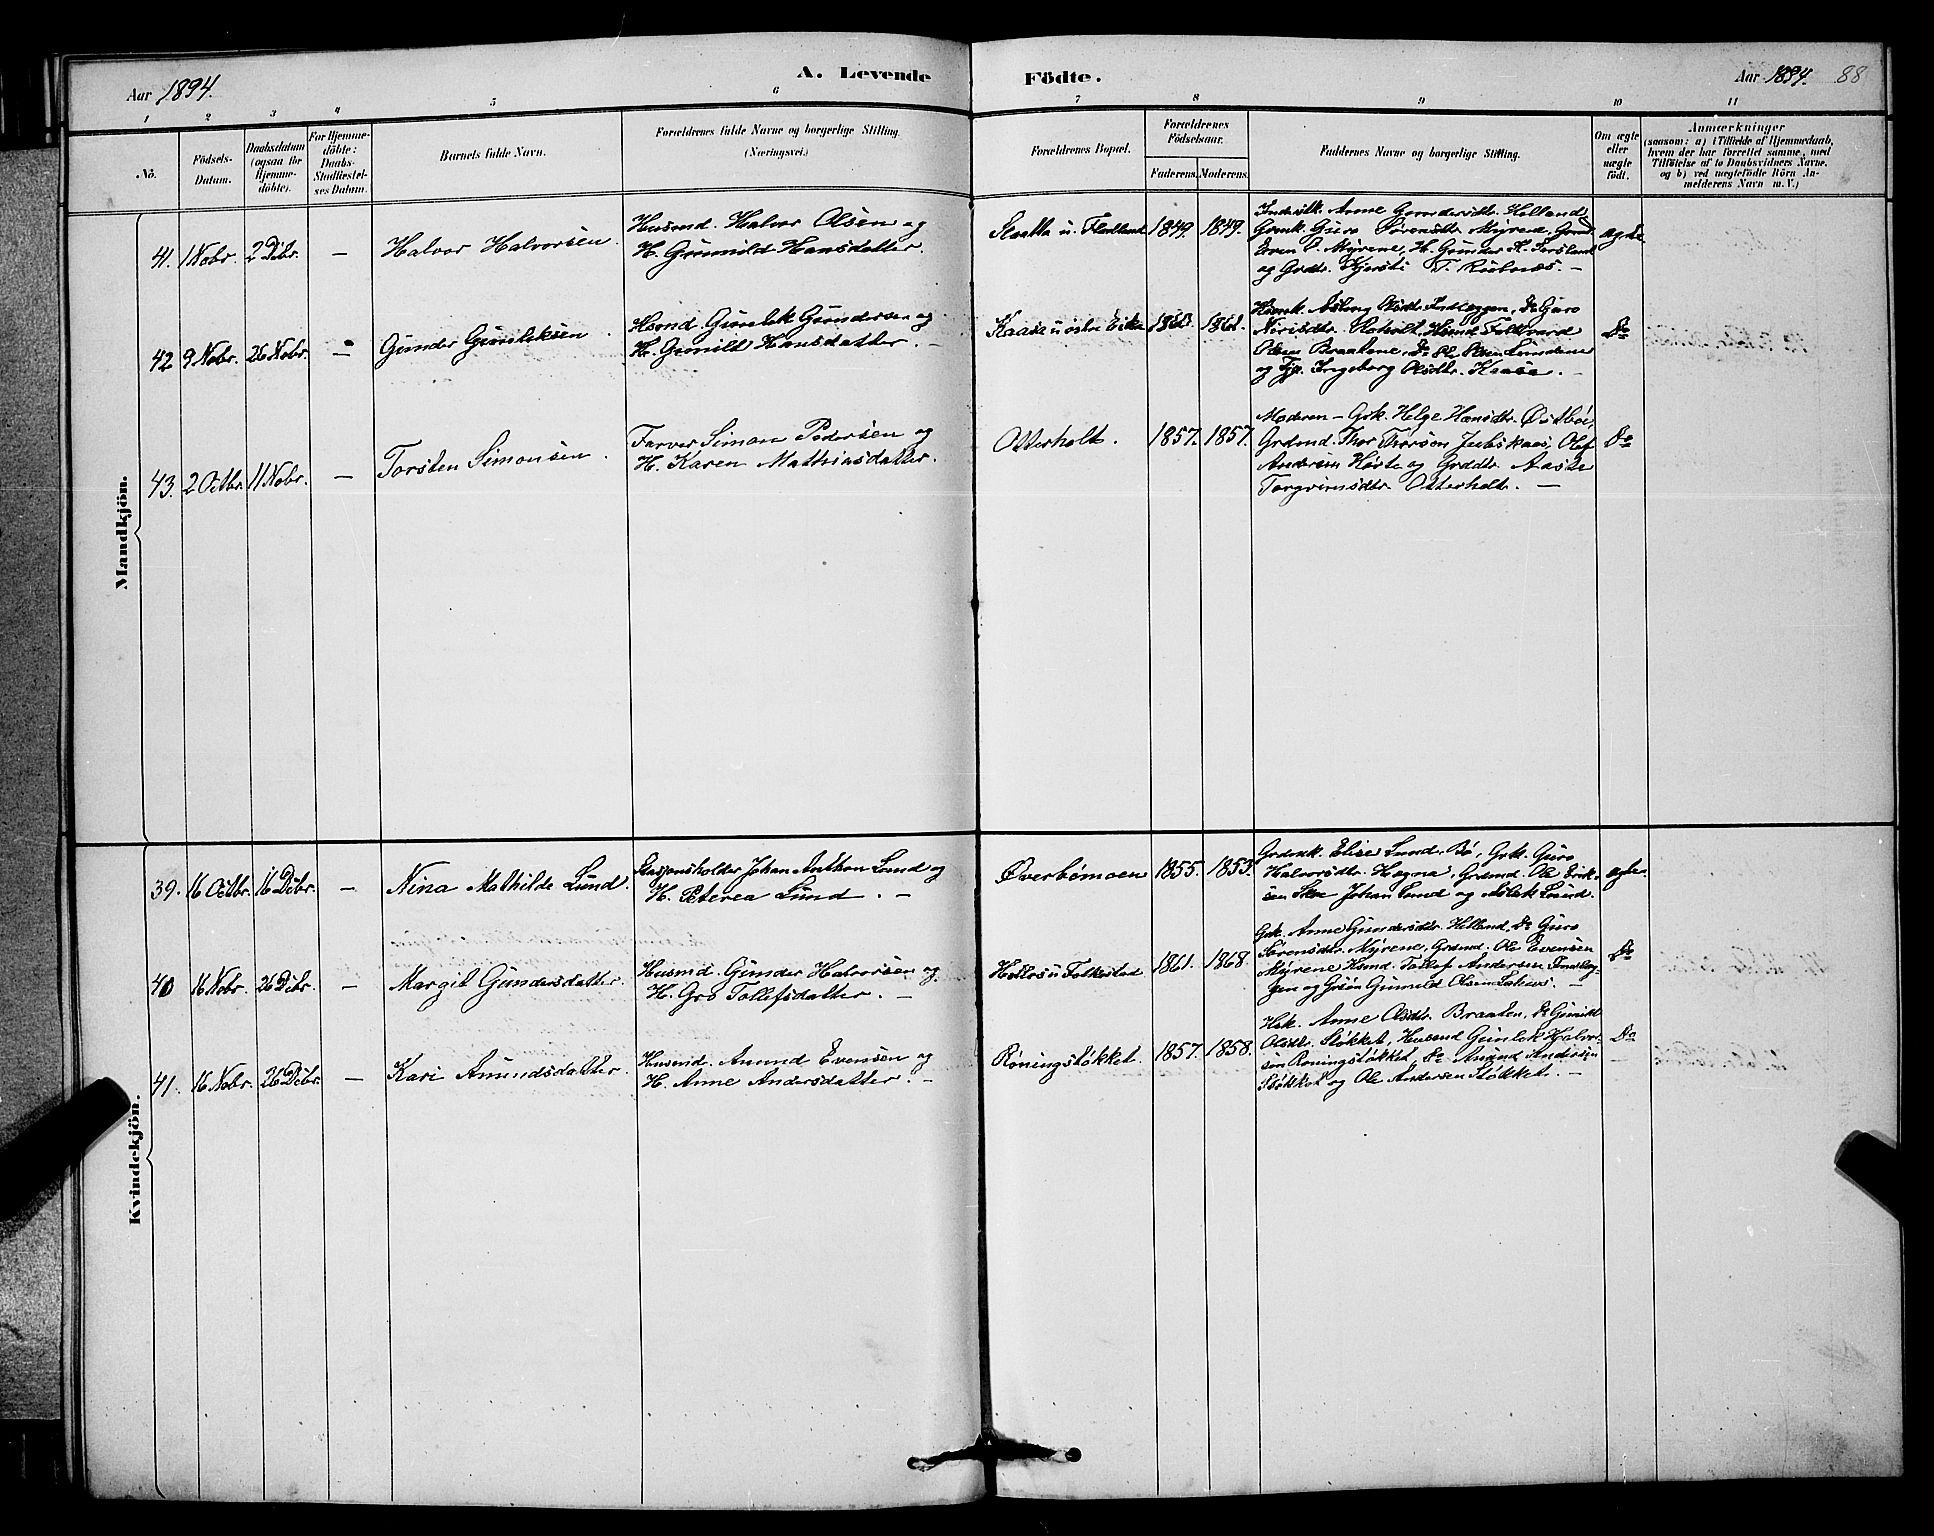 Aar 1894.
A. Levende
Födte.
Aar 1894. 88
1 2 3 4 5 6 7 8 9 10 11
No.
Födsels-Datum.
Daabsdatum (ogsaa for Hjemme-döbte).
For Hjemme-döbte: Daabs-Stadfæstel-ses Datum.
Barnets fulde Navn.
Forældrenes fulde Navne og borgerlige Stilling.
(Næringsvei.)
Forældrenes Bopæl.
Forældrenes Födselsaar.
Faderens. Moderens.
Faddernes Navne og borgerlige Stilling.
Om ægte eller uægte födt.
Anmærkninger
(saasom: a) i Tilfælde af Hjemmedaab,
hvem der har forrettet samme, med
Tilföielse af to Daabsvidners Navne.
og b) ved uægtefödte Börn An-
melderens Navn m. V.)
Mandkjön.
41. 1 Nobr. 2 Dcbr. — Halvor Halvorsen.
Husmd. Halvor Olsen og
H. Gunnild Hansdatter.
1849. 1849.
Anne Gundersdtr. Helland,
Guro Sørensdtr. Myrene,
Even Myrene, H. Gunder
og Kjersti —
ægte
42 9 Nobr. 26 Nobr. — Gunder Gunleksen.
Hsmd. Gunlek Gundersen og
H. Gunild Hansdatter. —
Kaasa u. østre Eika 1861.
Aslaug Olsdtr. Do Guro
Hsmd. Folkvard
Olsen Braatene, Do Ole Olsen
og Ingeborg Olsdtr. Kaasa. —
Do
43. 2 Octbr. 11 Nobr. — Torsten Simonsen.
Farver Simon Pedersen og
H. Karen Mathiasdatter.
Otterholt. 1857. 1857.
Moderen — Grk. Helge Hansdtr. Østbøe,
Grdmd. Thor Thorson Jubskaas, Olef
Andersen Hørte og Grddtr. Aaste
Torgrimsdtr. Otterholt. —
Do
Kvindekjön.
39. 16 Octbr. 16 Dcbr. — Nina Mathilde Lund.
Stasjonsholder Johan Anthon Lund og
H. Peterea Lund. —
Øverbömoen 1855. 1853.
Elise Lund, Bø, Grk. Guro
Halvorsdtr. Hagna, Grdmd. Ole Erik-
sen Johan Lund og Lund.
ægte.
40 16 Nobr. 26 Dcbr. — Margit Gundersdatter.
Husmd. Gunder Halvorsen og
H. Gro Tollefsdatter. —
u Folkestad 1861. 1868.
Grk. Anne Gundersdtr. Helland, Do Guro
Sørensdtr. Myrene, Grdmd. Ole Evensen
Myrene Hsmd. Tollef Andersen
gen og Gunnild Olsen —
Do
41. 16 Nobr. 26 Dcbr. — Kari Amundsdatter.
Husmd. Amund Evensen og
H. Anne Andersdatter. —
Röningstökket. 1857. 1858.
Hsk. Anne Olsdtr. Braaten, Do Gunild
Olsdtr. Støkket, Husmd Gunlek Halvor-
sen Roningstøkket, Do Amund Andersen
Støkket og Ole Andersen Støkket. —
Do